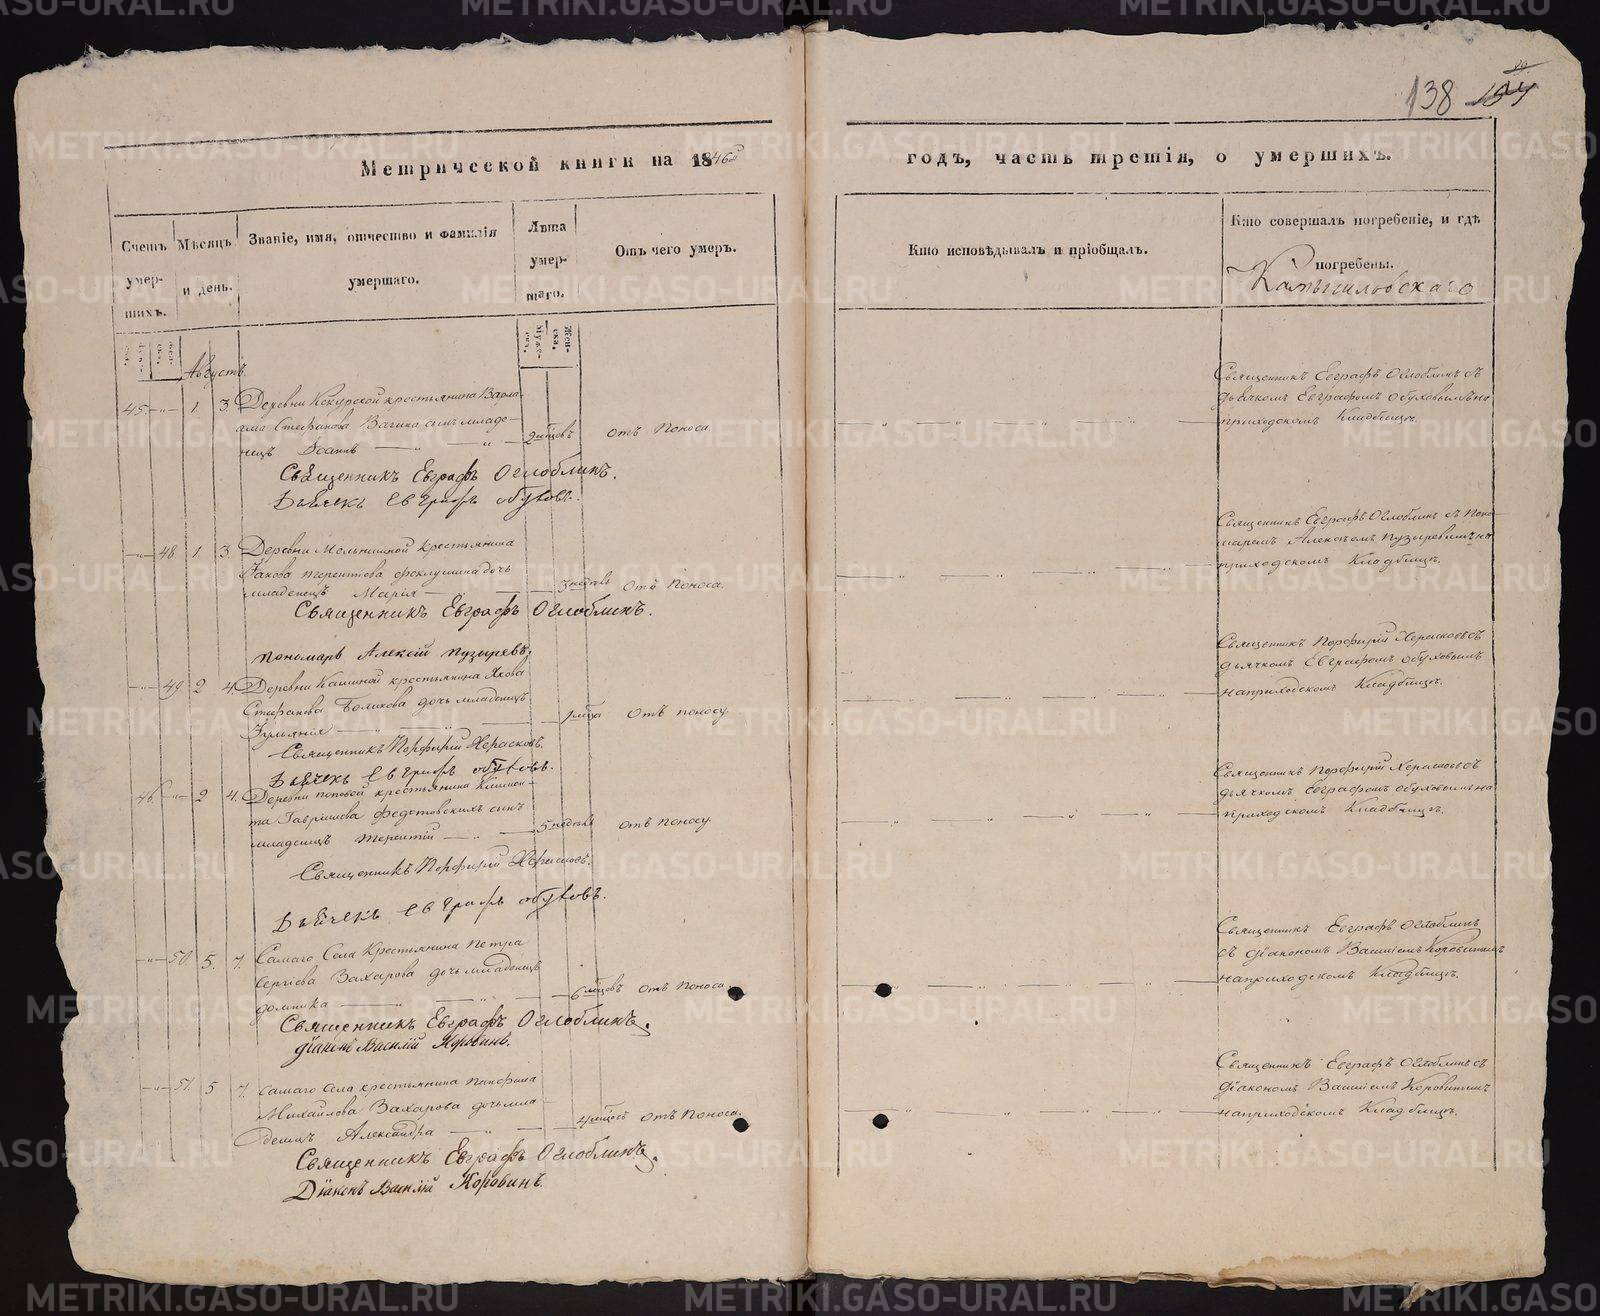 138 154
Метрической книги на 1846й годъ, часть третія, о умершихъ.
Счетъ умер-шихъ.
Мѣсяцъ и день.
Званіе, имя, отчество и фамилія умершаго.
Лѣта умер-шаго.
Отъ чего умеръ.
Кто исповѣдывалъ и пріобщалъ.
Кто совершалъ погребеніе, и гдѣ погребены.
Августъ.
45 — 1 3 Деревни Кекурской крестьянина Варла-
ама Стефанова Вагина сынъ младе-
нецъ Іоаннъ — 2 мѣсцовъ отъ поноса.
Священникъ Евграфъ Оглоблинъ съ
дьячкомъ Евграфомъ Обуховымъ на
приходскомъ Кладбищѣ.
Священникъ Евграфъ Оглоблинъ.
Дьячекъ Евграфъ Обуховъ.
— 48 1. 3. Деревни Мельнишной крестьянина
Іакова Терентьева Феклушина дочь
младенецъ Марія — 3 недѣль отъ поноса.
Священникъ Евграфъ Оглоблинъ съ поно-
маремъ Алексѣемъ Пузыревымъ на
приходскомъ Кладбищѣ.
Священникъ Евграфъ Оглоблинъ.
Пономарь Алексій Пузыревъ.
— 49 2 4 Деревни крестьянина Якова
Стефанова дочь младенецъ
Іульянія — 1 мѣсца отъ поносу.
Священникъ Порфирій Херасковъ съ
дьячкомъ Евграфомъ Обуховымъ
на приходскомъ Кладбищѣ.
Священникъ Порфирій Херасковъ.
Дьячекъ Евграфъ Обуховъ.
46. — 2 4. Деревни Поповой крестьянина Климен-
та Гаврилова Федотовскихъ сынъ
младенецъ Терентій — 5 недѣль отъ поносу.
Священникъ Порфирій Херасковъ съ
дьячкомъ Евграфомъ Обуховымъ на
приходскомъ Кладбищѣ.
Священникъ Порфирій Херасковъ.
Дьячекъ Евграфъ Обуховъ.
— 50. 5. 7. Самаго Села Крестьянина Петра
Сергіева Захарова дочь младенецъ
Домника — 6 мѣсцовъ отъ поноса
Священникъ Евграфъ Оглоблинъ
съ діакономъ Василіемъ Коровинымъ
на приходскомъ Кладбищѣ.
Священникъ Евграфъ Оглоблинъ.
Діаконъ Василій Коровинъ.
— 51. 5 7. Самаго Села крестьянина Панфила
Михайлова Захарова дочь мла-
денецъ Александра — 4 мѣсцъ отъ поноса.
Священникъ Евграфъ Оглоблинъ съ
діакономъ Василіемъ Коровинымъ
на приходскомъ Кладбищѣ.
Священникъ Евграфъ Оглоблинъ.
Діаконъ Василій Коровинъ.
METRIKI.GASO-URAL.RU